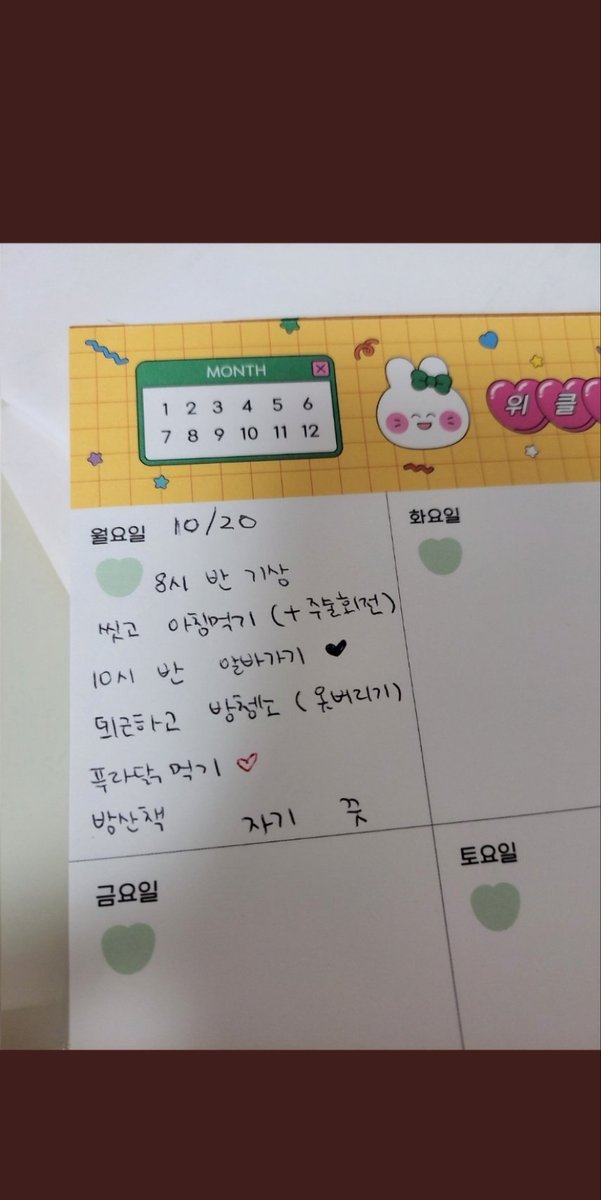 MONTH
1 2 3 4 5 6
7 8 9 10 11 12
위클
월요일 10/20
8시 반 기상
씻고 아침먹기 (+주술회전)
10시 반 알바가기 ♥
퇴근하고 방청소 (옷버리기)
푸라닭 먹기 ♡
밤산책 자기 끗
화요일
금요일
토요일